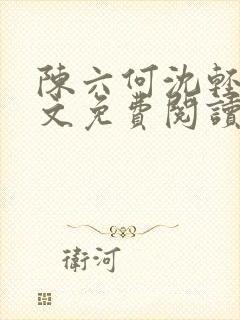 陳六何沈輕
文免費閱讀
衛河